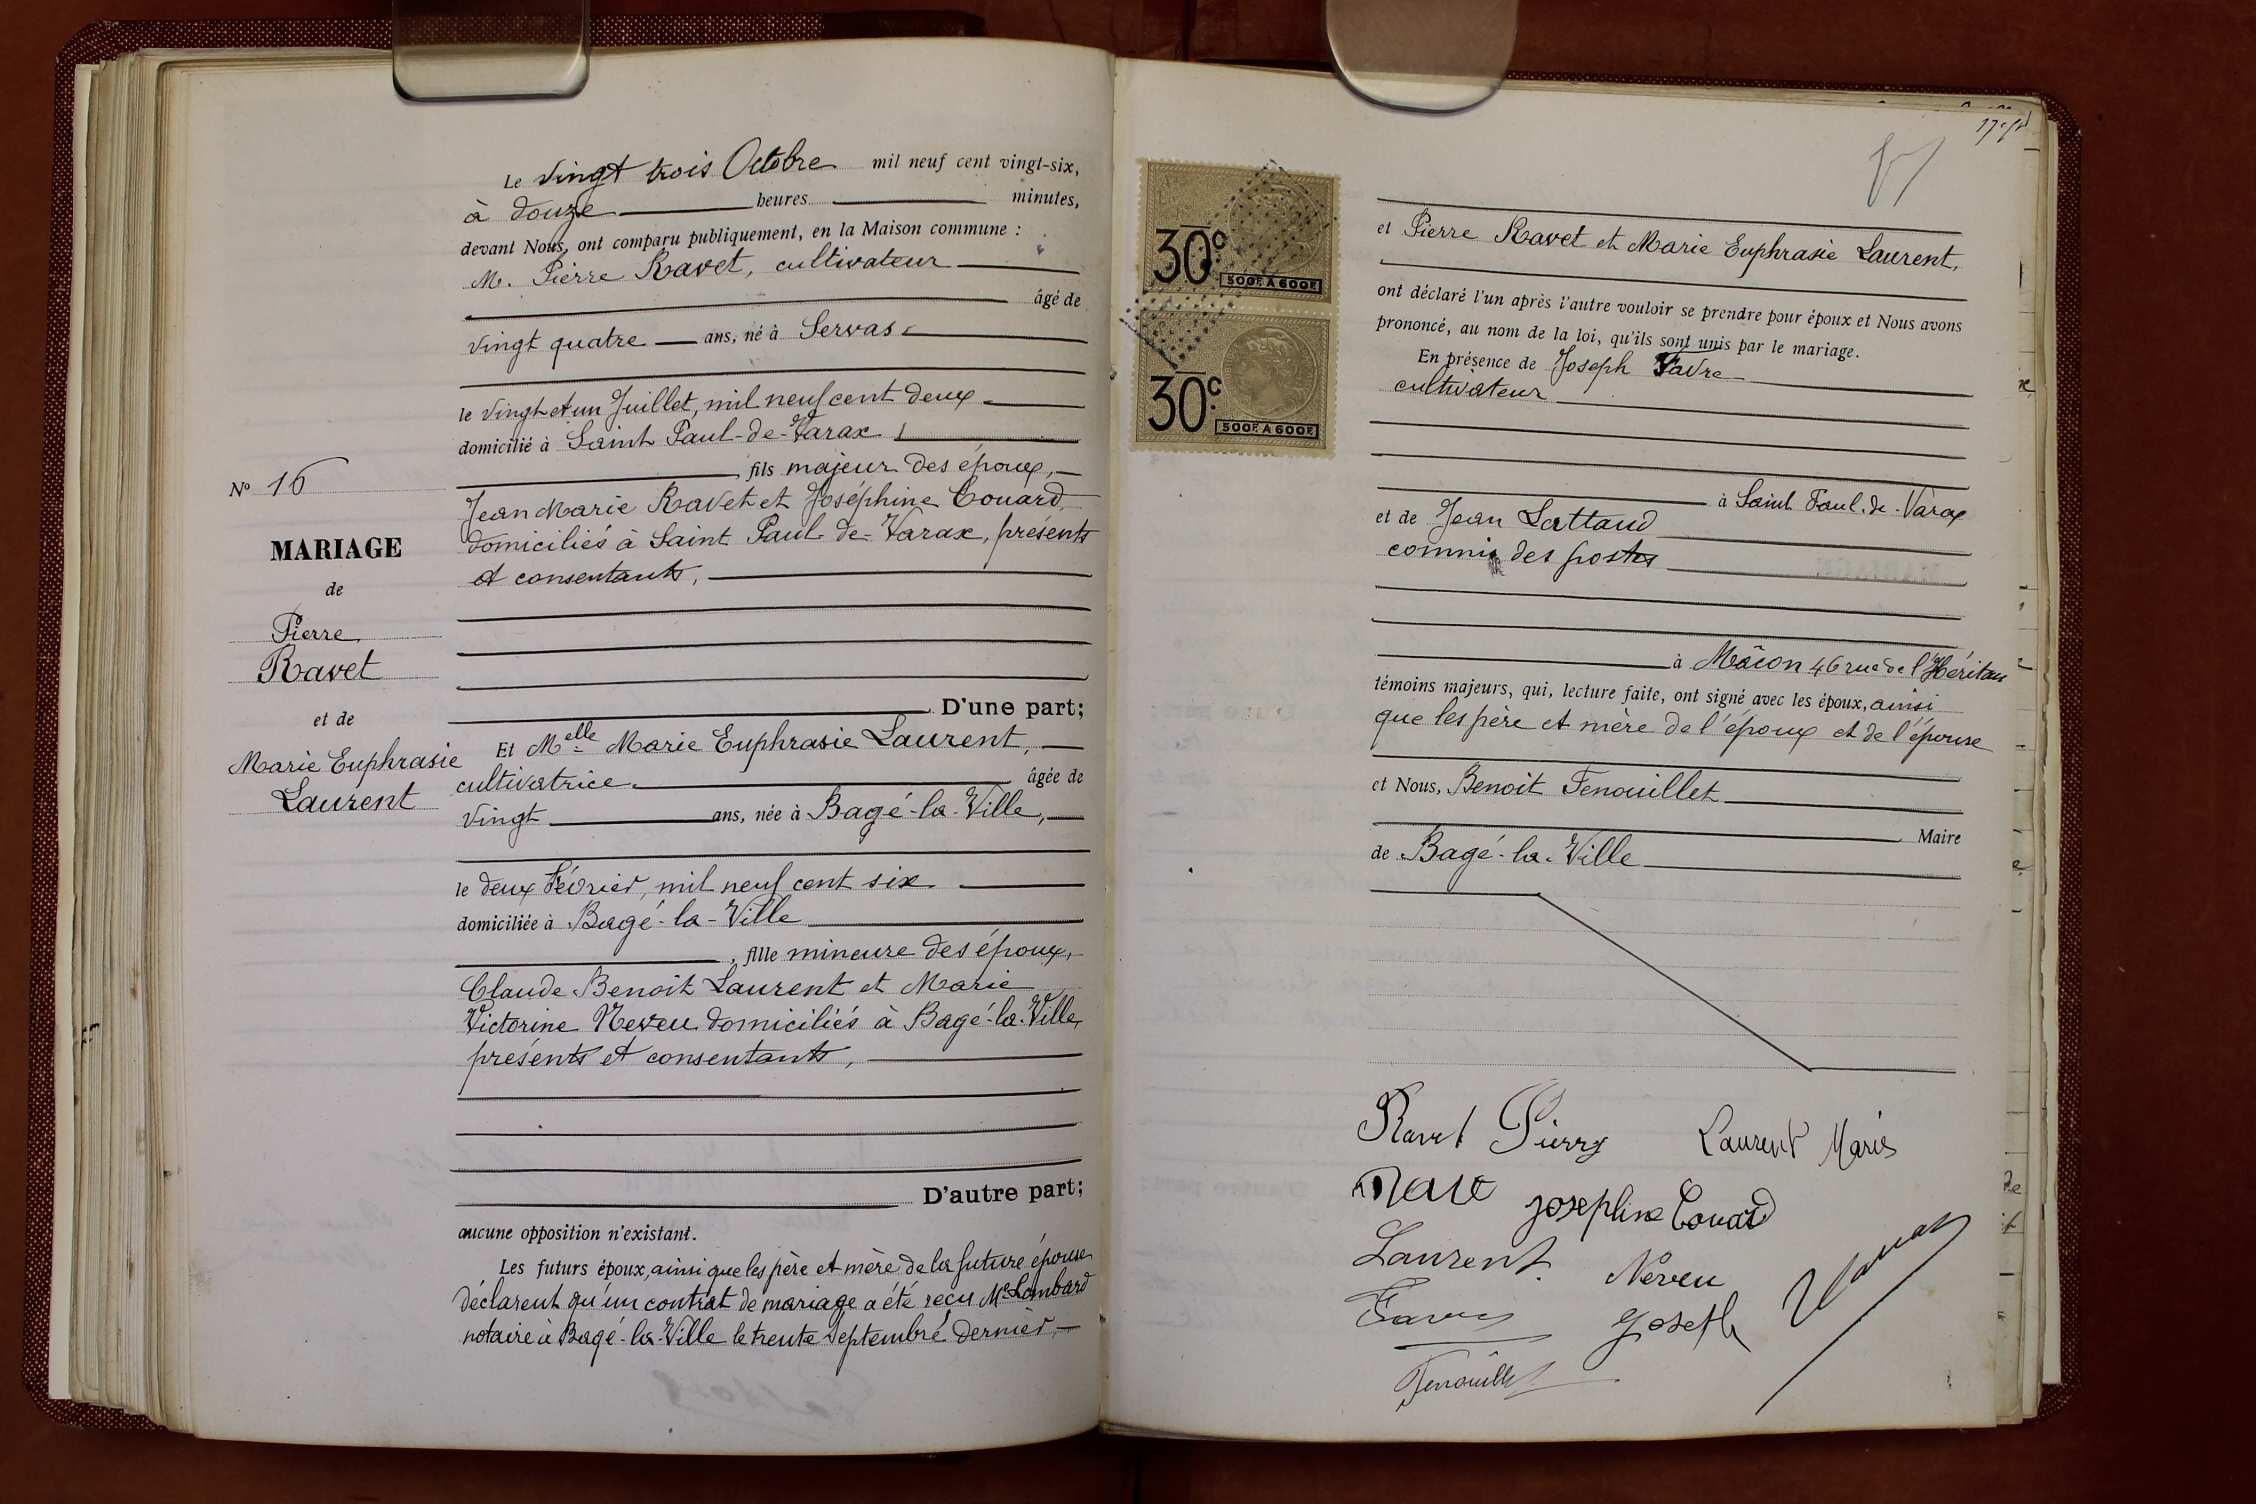 Le vingt trois Octobre mil neuf cent vingt-six,
à douze heures minutes,
devant Nous, ont comparu publiquement, en la Maison commune :
M. Pierre Ravet, cultivateur
âgé de
vingt quatre ans, né à Servas
le vingt et un Juillet, mil neuf cent deux
domicilié à Saint Paul-de-Varax
fils majeur des époux,
Jean Marie Ravet et Joséphine Couard
domiciliés à Saint Paul-de-Varax, présents
et consentants,
D'une part;
N° 16
MARIAGE
de
Pierre
Ravet
et de
Marie Euphrasie
Laurent
Et Melle Marie Euphrasie Laurent,
cultivatrice âgée de
vingt ans, née à Bagé-la-Ville,
le deux Février, mil neuf cent six
domiciliée à Bagé-la-Ville
, fille mineure des époux,
Claude Benoit Laurent et Marie
Victorine Neveu domiciliés à Bagé-la-Ville,
présents et consentants,
D'autre part;
aucune opposition n'existant.
Les futurs époux, ainsi que les père et mère de la future épouse
déclarent qu'un contrat de mariage a été reçu Me Lombard
notaire à Bagé-la-Ville le trente Septembre dernier,
30c.
500F. A 600F.
30c.
500F. A 600F.
et Pierre Ravet et Marie Euphrasie Laurent,
ont déclaré l'un après l'autre vouloir se prendre pour époux et Nous avons
prononcé, au nom de la loi, qu'ils sont unis par le mariage.
En présence de Joseph Favre
cultivateur
à Saint Paul-de-Varax
et de Jean Lattaud
commis des postes
à Mâcon 46 rue de l'Héritan
témoins majeurs, qui, lecture faite, ont signé avec les époux, ainsi
que les père et mère de l'époux et de l'épouse
et Nous, Benoit Fenouillet
Maire
de Bagé-la-Ville
Ravet Pierre Laurent Marie
Ravet Josephine Couard
Laurent Neveu
Favre Joseph
Fenouillet